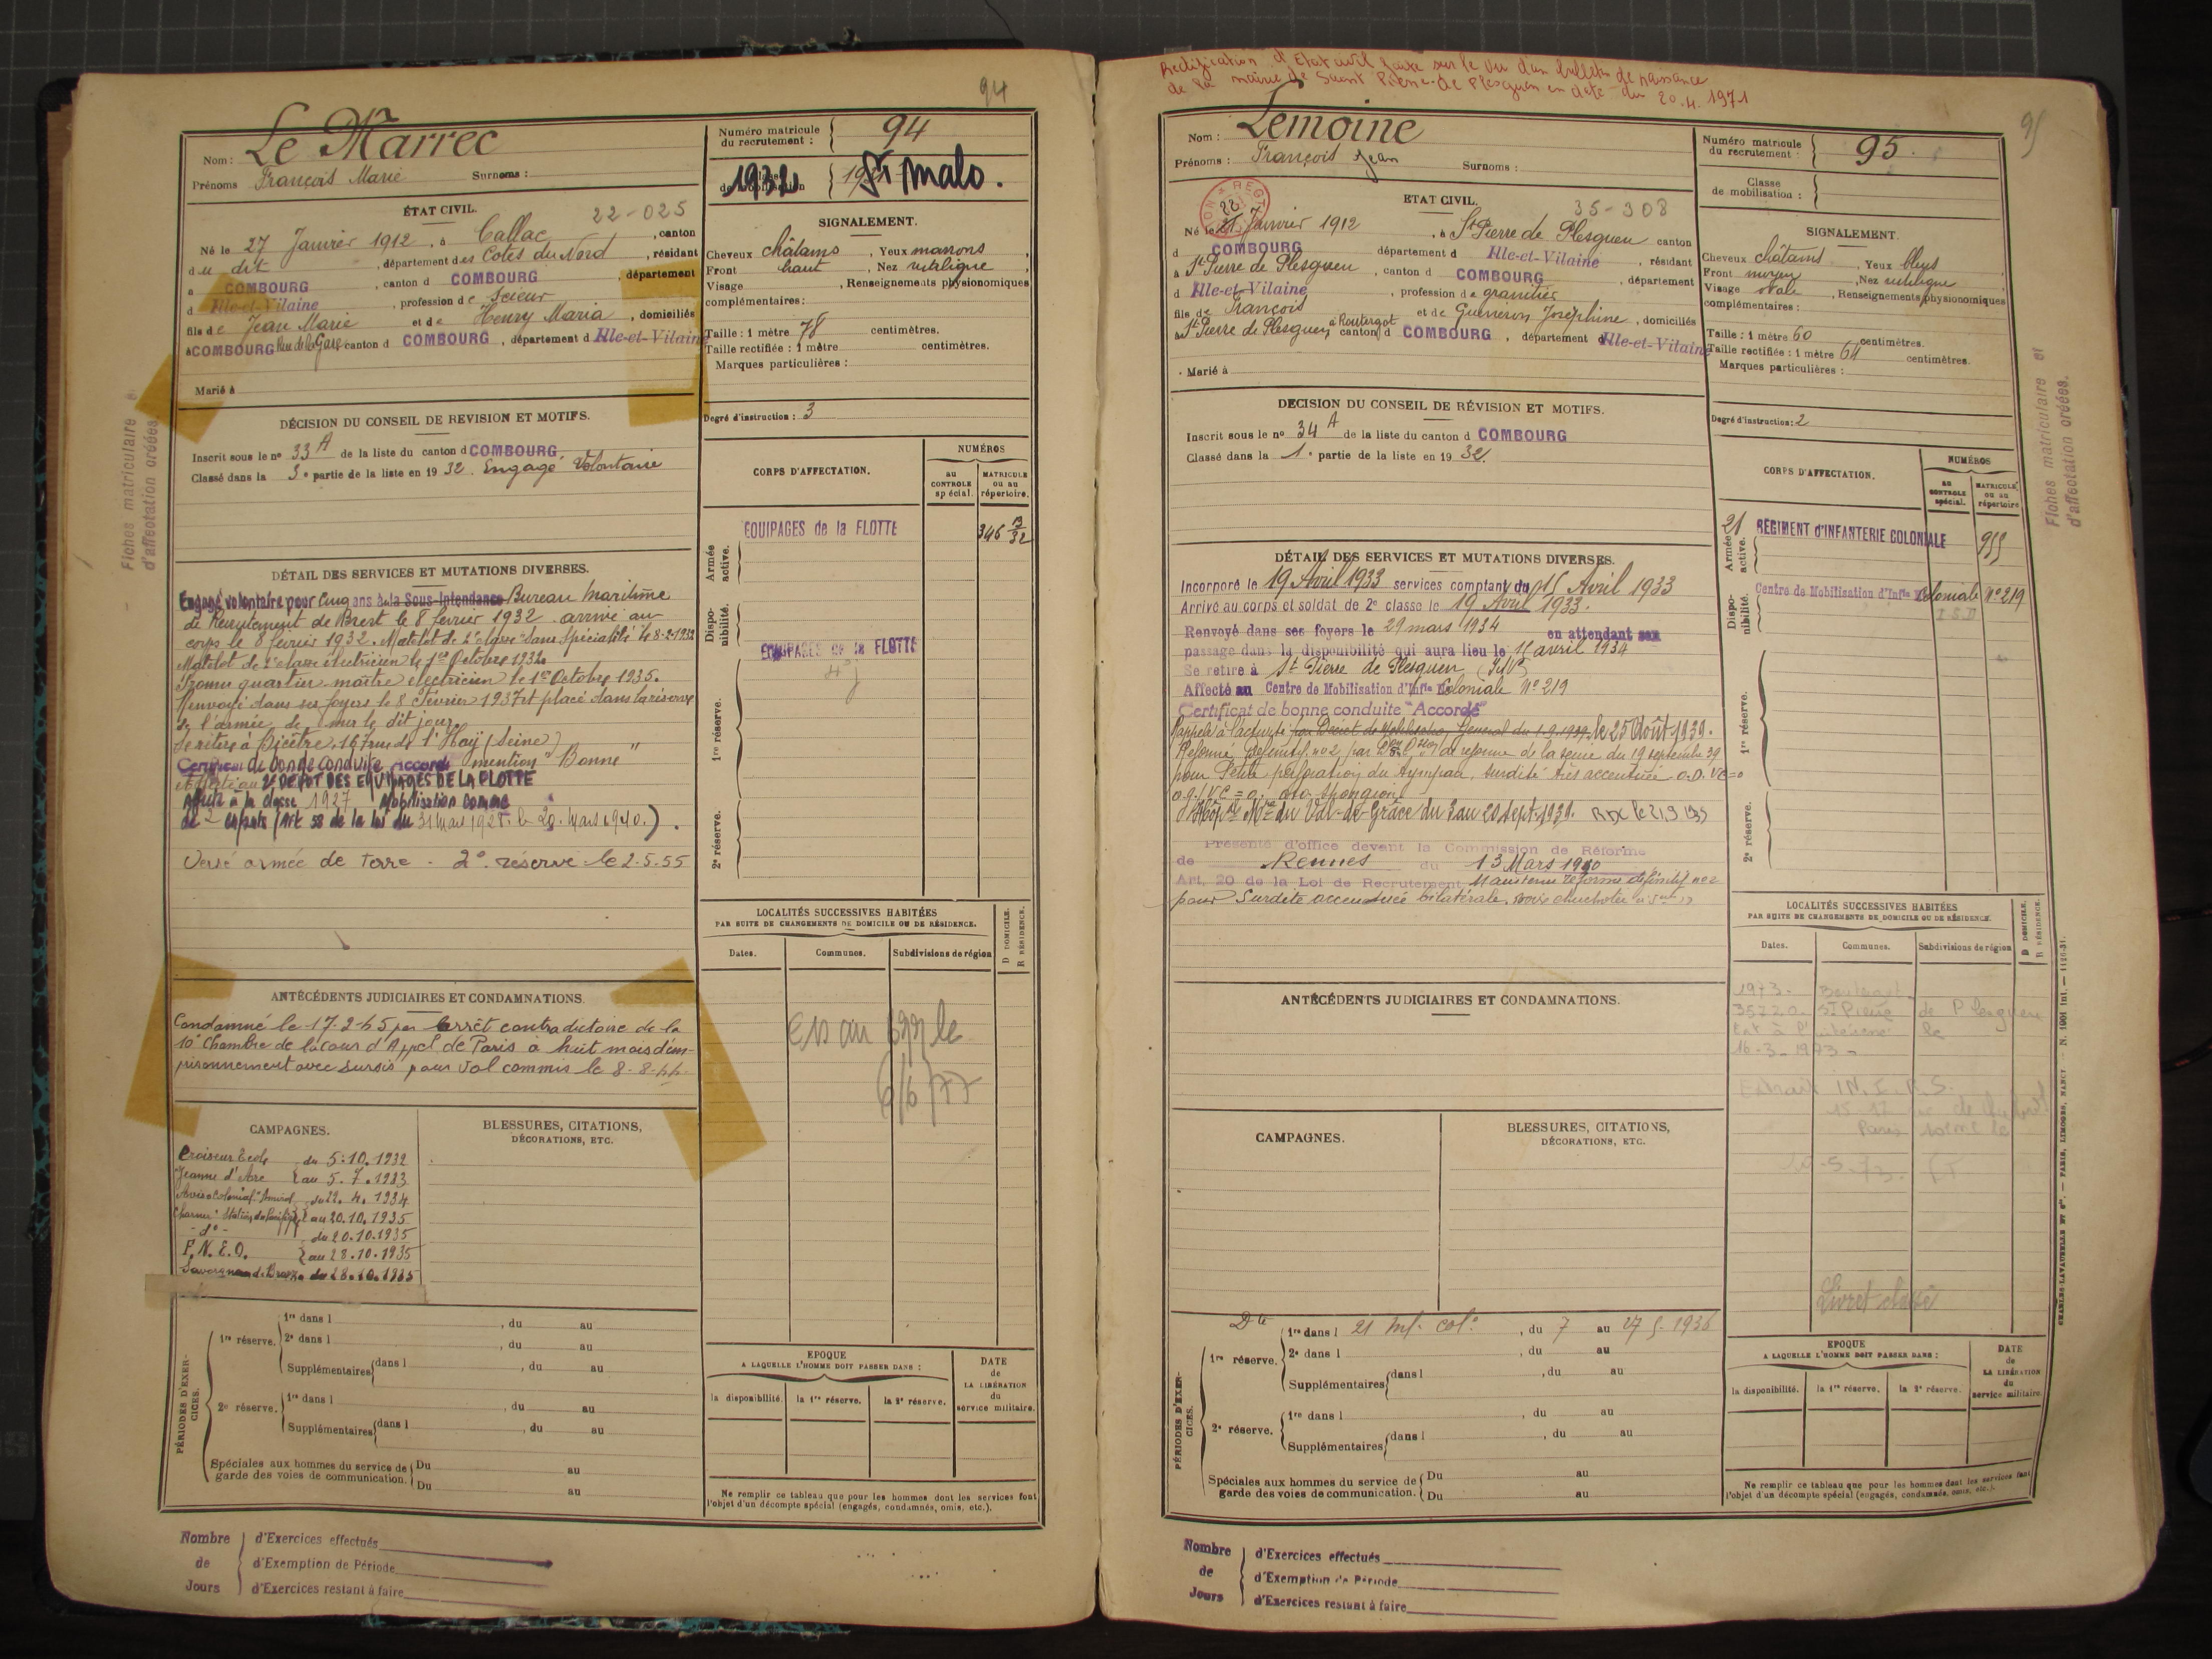 94
Nom : Le Marrec
Prénoms François Marie Surnoms :
Numéro matricule du recrutement : 94
1932 St Malo.
ÉTAT CIVIL. 22-025
Né le 27 Janvier 1912, à Callac, canton
du dit, département des Côtes du Nord, résidant
à COMBOURG, canton d COMBOURG, département
d Ille-et-Vilaine, profession de scieur
fils de Jean Marie et de Henry Maria, domiciliés
à COMBOURG Rue de la Gare canton d COMBOURG, département d Ille-et-Vilaine
Marié à
SIGNALEMENT.
Cheveux châtains, Yeux marrons,
Front haut, Nez rectiligne,
Visage, Renseignements physionomiques
complémentaires :
Taille : 1 mètre 78 centimètres.
Taille rectifiée : 1 mètre centimètres.
Marques particulières :
Degré d'instruction : 3
DÉCISION DU CONSEIL DE REVISION ET MOTIFS.
Inscrit sous le nº 33 A de la liste du canton d COMBOURG
Classé dans la 3e partie de la liste en 1932. Engagé Volontaire
CORPS D'AFFECTATION.
NUMÉROS
AU CONTROLE spécial.
MATRICULE ou au répertoire.
Armée active.
EQUIPAGES de la FLOTTE 346 B/32
Disponibilité.
EQUIPAGES de la FLOTTE
1re réserve.
2e réserve.
Fiches matriculaire et
d'affectation créées.
DÉTAIL DES SERVICES ET MUTATIONS DIVERSES.
Engagé volontaire pour cinq ans à la Sous-Intendance Bureau Maritime
de Recrutement de Brest le 8 février 1932. arrivé au
corps le 8 février 1932. Matelot de 2e classe sans spécialité le 8-2-1932
Matelot de 2e classe électricien le 1er Octobre 1932
Promu quartier-maître électricien le 1er Octobre 1935.
Renvoyé dans ses foyers le 8 Février 1937 et placé dans la réserve
de l'armée de mer le dit jour.
Se retire à Bicêtre, 167 rue de l'Haÿ (Seine)
Certificat de bonne conduite Accordé mention "Bonne"
Affecté au 2e DEPOT DES EQUIPAGES DE LA FLOTTE
Affecté à la classe 1927 Mobilisation comme
de 2 enfants (Art 58 de la loi du 31 Mars 1928. le 20. Mars 1940.).
Versé armée de terre - 2e réserve le 2-5-55
LOCALITÉS SUCCESSIVES HABITÉES
PAR SUITE DE CHANGEMENTS DE DOMICILE OU DE RÉSIDENCE.
Dates. Communes. Subdivisions de région
D DOMICILE.
R RÉSIDENCE.
6/6/77
ANTÉCÉDENTS JUDICIAIRES ET CONDAMNATIONS.
Condamné le 17-2-45 par Arrêt contradictoire de la
10e Chambre de la Cour d'Appel de Paris à huit mois d'em-
prisonnement avec sursis pour vol commis le 8-8-44.
CAMPAGNES.
Croiseur Ecole du 5.10.1932
Jeanne d'Arc au 5.7.1933
Aviso colonial "Amiral du 22.4.1934
Charner" Station du Pacifique au 20.10.1935
- do - du 20.10.1935
F.N.E.O. au 28.10.1935
Savorgnan de Brazza du 28.10.1935
BLESSURES, CITATIONS,
DÉCORATIONS, ETC.
PÉRIODES D'EXERCICES.
1re réserve. 1re dans l, du au
2e dans l, du au
Supplémentaires dans l, du au
2e réserve. 1re dans l, du au
Supplémentaires dans l, du au
Spéciales aux hommes du service de garde des voies de communication. Du au
Du au
EPOQUE
A LAQUELLE L'HOMME DOIT PASSER DANS :
la disponibilité. la 1re réserve. la 2e réserve.
DATE de LA LIBÉRATION du service militaire.
Ne remplir ce tableau que pour les hommes dont les services font
l'objet d'un décompte spécial (engagés, condamnés, omis, etc.).
Nombre de Jours
d'Exercices effectués
d'Exemption de Période
d'Exercices restant à faire
Rectification d'Etat civil faite sur le vu d'un bulletin de naissance
de la mairie de Saint Pierre de Plesguen en date du 20.4.1971
95
Nom : Lemoine
Prénoms : François Jean Surnoms :
Numéro matricule du recrutement : 95.
Classe de mobilisation :
ETAT CIVIL. 35-308
Né le 22 Janvier 1912, à St Pierre de Plesguen canton
d COMBOURG département d Ille-et-Vilaine, résidant
à St Pierre de Plesguen, canton d COMBOURG, département
d Ille-et-Vilaine, profession de granitier
fils de François et de Gueneron Joséphine, domiciliés
à St Pierre de Plesguen, à Routergot canton d COMBOURG, département d Ille-et-Vilaine
Marié à
SIGNALEMENT.
Cheveux châtains, Yeux bleus
Front moyen, Nez rectiligne
Visage ovale, Renseignements physionomiques
complémentaires :
Taille : 1 mètre 60 centimètres.
Taille rectifiée : 1 mètre 64 centimètres.
Marques particulières :
Degré d'instruction : 2
DECISION DU CONSEIL DE RÉVISION ET MOTIFS.
Inscrit sous le nº 34 A de la liste du canton d COMBOURG
Classé dans la 1e partie de la liste en 1932.
CORPS D'AFFECTATION.
NUMÉROS
AU CONTROLE spécial.
MATRICULE ou au répertoire
Armée active.
21 REGIMENT d'INFANTERIE COLONIALE 955
Disponibilité.
Centre de Mobilisation d'Infie Coloniale Nº 219
1re réserve.
2e réserve.
Fiches matriculaire et
d'affectation créées.
DÉTAIL DES SERVICES ET MUTATIONS DIVERSES.
Incorporé le 19 Avril 1933 services comptant du 15 Avril 1933
Arrivé au corps et soldat de 2e classe le 19 Avril 1933.
Renvoyé dans ses foyers le 29 mars 1934 en attendant son
passage dans la disponibilité qui aura lieu le 15 avril 1934
Se retire à St Pierre de Plesguen (I.&V.)
Affecté au Centre de Mobilisation d'Infie Coloniale Nº 219
Certificat de bonne conduite "Accordé"
Rappelé à l'activité par Décret de Mobilisation Générale du 1-9-1939. le 25 Août 1939.
Réformé définitif nº 2 par de réforme de la Seine du 19 septembre 39
pour Petite perforation du tympan, surdité très accentuée. O.D. VC=0
O.G. VC=0.
Hôpal Mre du Val-de-Grâce du 3 au 20 sept. 1939. RDC le 21.9.1939
Présenté d'office devant la Commission de Réforme
de Rennes du 13 Mars 1940
Art. 20 de la Loi de Recrutement Maintenu réformé définitif nº 2
pour surdité accentuée bilatérale, voix chuchotée
LOCALITÉS SUCCESSIVES HABITÉES
PAR SUITE DE CHANGEMENTS DE DOMICILE OU DE RÉSIDENCE.
Dates. Communes. Subdivisions de région
D DOMICILE.
R RÉSIDENCE.
1973.
35720. St Pierre de Plesguen
16-3-1973 -
Livret classé
ANTÉCÉDENTS JUDICIAIRES ET CONDAMNATIONS.
CAMPAGNES.
BLESSURES, CITATIONS,
DÉCORATIONS, ETC.
PÉRIODES D'EXERCICES.
1re réserve. 1re dans l 21 Inf. col., du 7 au 27 5-1936
2e dans l, du au
Supplémentaires dans l, du au
2e réserve. 1re dans l, du au
Supplémentaires dans l, du au
Spéciales aux hommes du service de garde des voies de communication. Du au
Du au
EPOQUE
A LAQUELLE L'HOMME DOIT PASSER DANS :
la disponibilité. la 1re réserve. la 2e réserve.
DATE de LA LIBÉRATION du service militaire.
Ne remplir ce tableau que pour les hommes dont les services font
l'objet d'un décompte spécial (engagés, condamnés, omis, etc.).
CHARLES-LAVAUZELLE ET Cie. — PARIS, LIMOGES, NANCY
Nombre de Jours
d'Exercices effectués
d'Exemption de Période
d'Exercices restant à faire